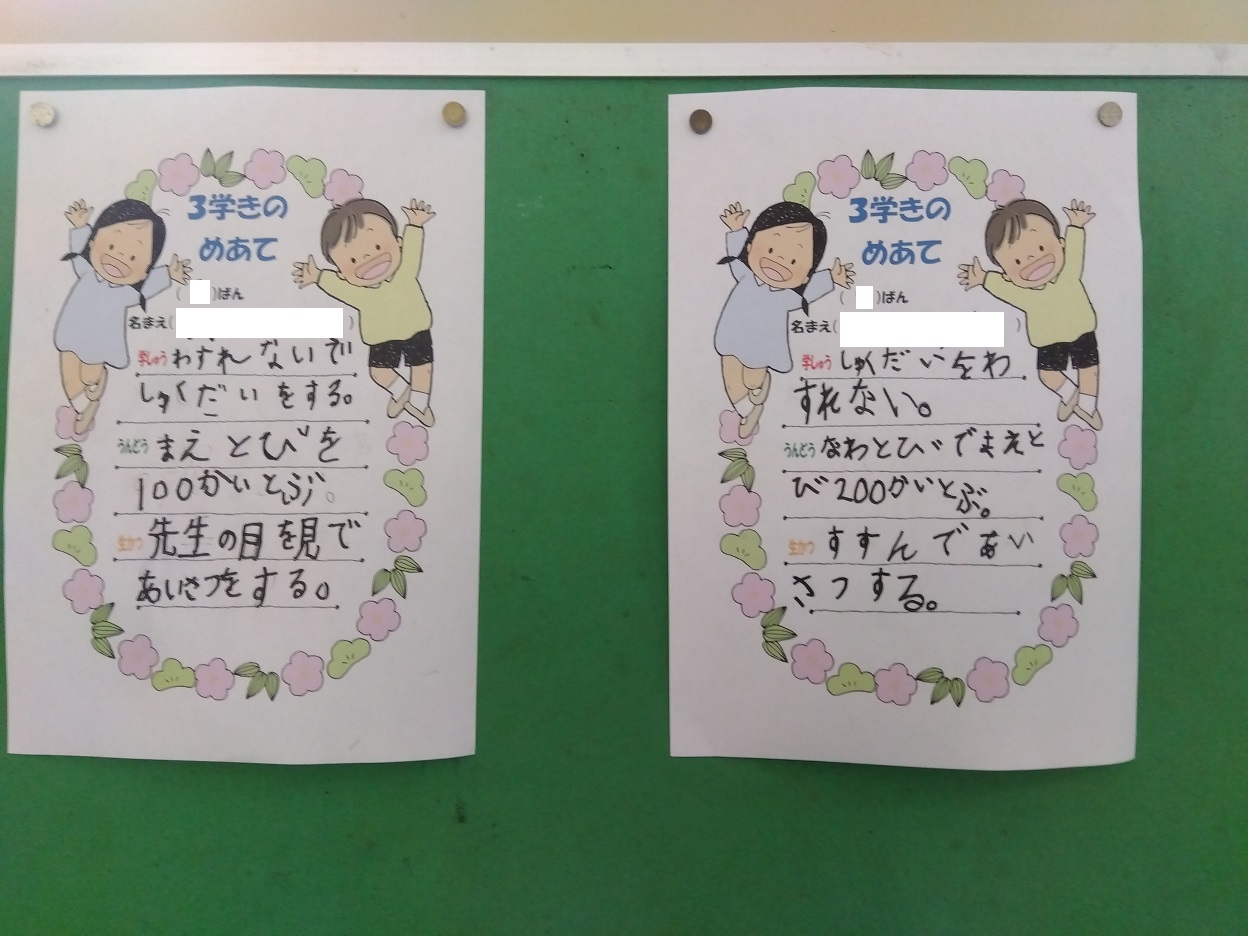 3学きの
めあて
( )ばん
名まえ( )
学しゅう わすれないで
しゅくだいをする。
うんどう まえとびを
100かいとぶ。
生かつ 先生の目を見て
あいさつをする。
3学きの
めあて
( )ばん
名まえ( )
学しゅう しゅくだいをわ
すれない。
うんどう なわとびでまえと
び200かいとぶ。
生かつ すすんであい
さつする。